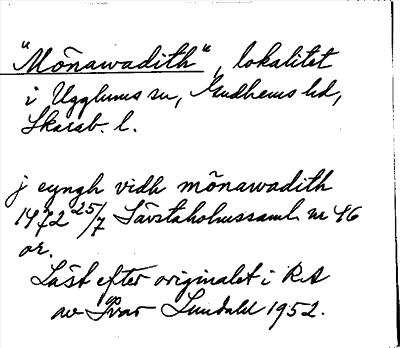 "Mõnawadith", lokalitet
i Ugglums sn, Gudhems hd,
Skarab. l.
j eyngh vidh mõnawadith
1472 25/7 Sävstaholmssaml. nr 46
or.
Läst efter originalet i RA
av Ivar Lundahl 1952.